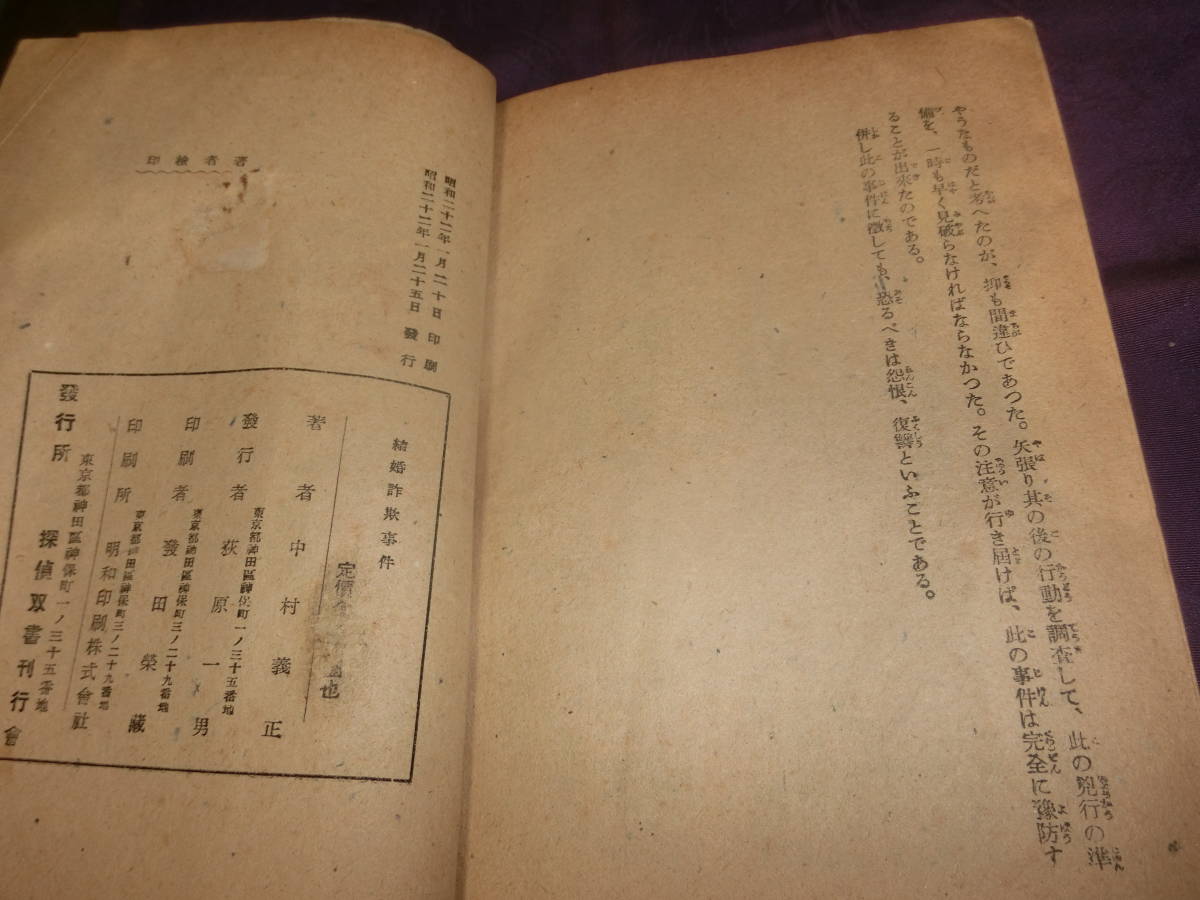 やうたものだと考へたのが、抑も間違ひであつた。矢張り其の後の行動を調査して、此の兇行の準
備を、一時も早く見破らなければならなかつた。その注意が行き屆けば、此の事件は完全に豫防す
ることが出來たのである。
併し此の事件に徵しても、恐るべきは怨恨、復讐といふことである。
昭和二十二年一月二十日印刷
昭和二十二年一月二十五日發行
著者檢印
結婚詐欺事件
定價
也
著者 中村義正
東京都神田區神保町一ノ三十五番地
發行者 荻原一男
東京都神田區神保町三ノ二十九番地
印刷者 發田榮藏
東京都神田區神保町三ノ二十九番地
印刷所 明和印刷株式會社
東京都神田區神保町一ノ三十五番地
發行所 探偵双書刊行會